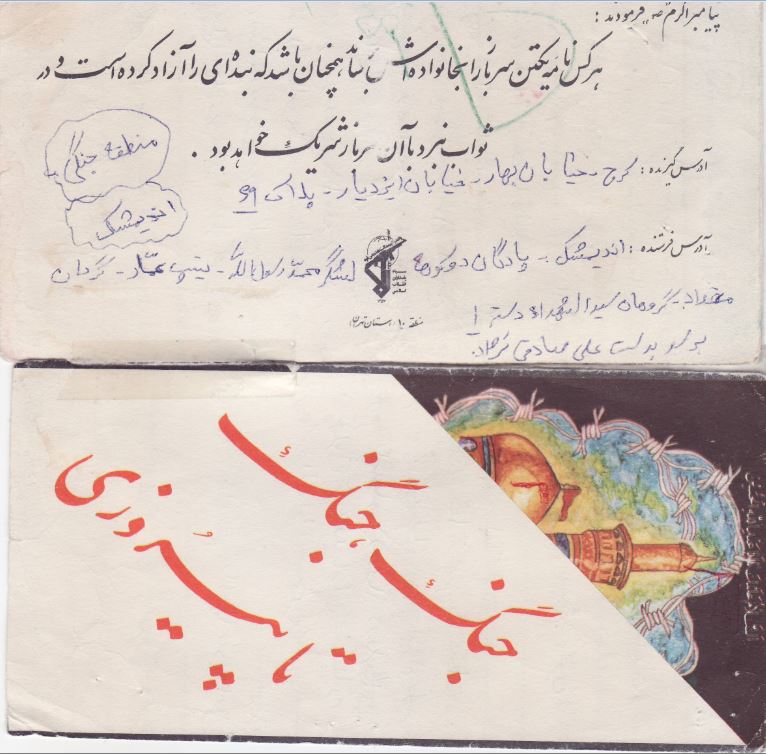 پیامبر اکرم «ص» فرمودند :
هر کس نامه یکتن سرباز را بخانواده اش برساند همچنان باشد که بنده ای را آزاد کرده است و در
ثواب نبرد با آن سرباز شریک خواهد بود .
منطقه جنگی
اندیمشک
آدرس گیرنده : کرج - خیابان بهار - خیابان ایزدیار - پلاک ۶۹
آدرس فرستنده : اندیمشک - پادگان دوکوهه لشگر محمد رسول الله - تیپ عمار - گردان
مقداد - گروهان سیدالشهداء دسته ۱
برسد بدست علی صادقی نژاد
منطقه ۱۰ (استان تهران)
جنگ، جنگ
تا پیروزی